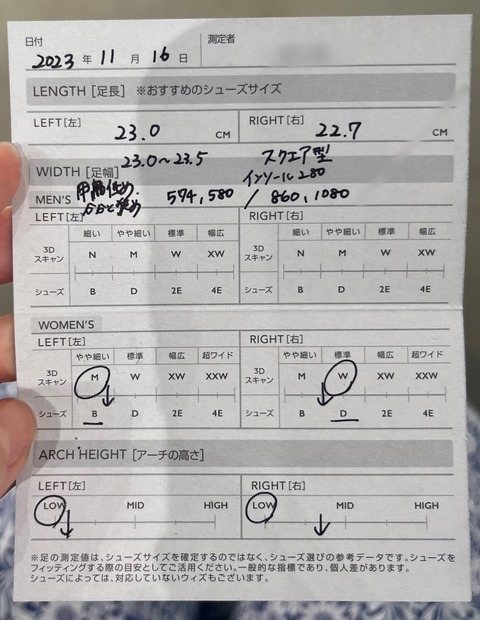 日付 測定者
2023 年 11 月 16 日
LENGTH [足長] ※おすすめのシューズサイズ
LEFT[左] RIGHT[右]
23.0 CM 22.7 CM
23.0~23.5 スクエア型
WIDTH [足幅] インソール280
MEN'S 574, 580 / 860, 1080
LEFT[左] RIGHT[右]
細い やや細い 標準 幅広 細い やや細い 標準 幅広
3D
スキャン N M W XW 3D
スキャン N M W XW
シューズ B D 2E 4E シューズ B D 2E 4E
WOMEN'S
LEFT[左] RIGHT[右]
やや細い 標準 幅広 超ワイド やや細い 標準 幅広 超ワイド
3D
スキャン M W XW XXW 3D
スキャン M W XW XXW
シューズ B D 2E 4E シューズ B D 2E 4E
ARCH HEIGHT [アーチの高さ]
LEFT[左] RIGHT[右]
LOW MID HIGH LOW MID HIGH
※足の測定値は、シューズサイズを確定するのではなく、シューズ選びの参考データです。シューズを
フィッティングする際の目安としてご活用ください。一般的な指標であり、個人差があります。
シューズによっては、対応していないウィズもございます。